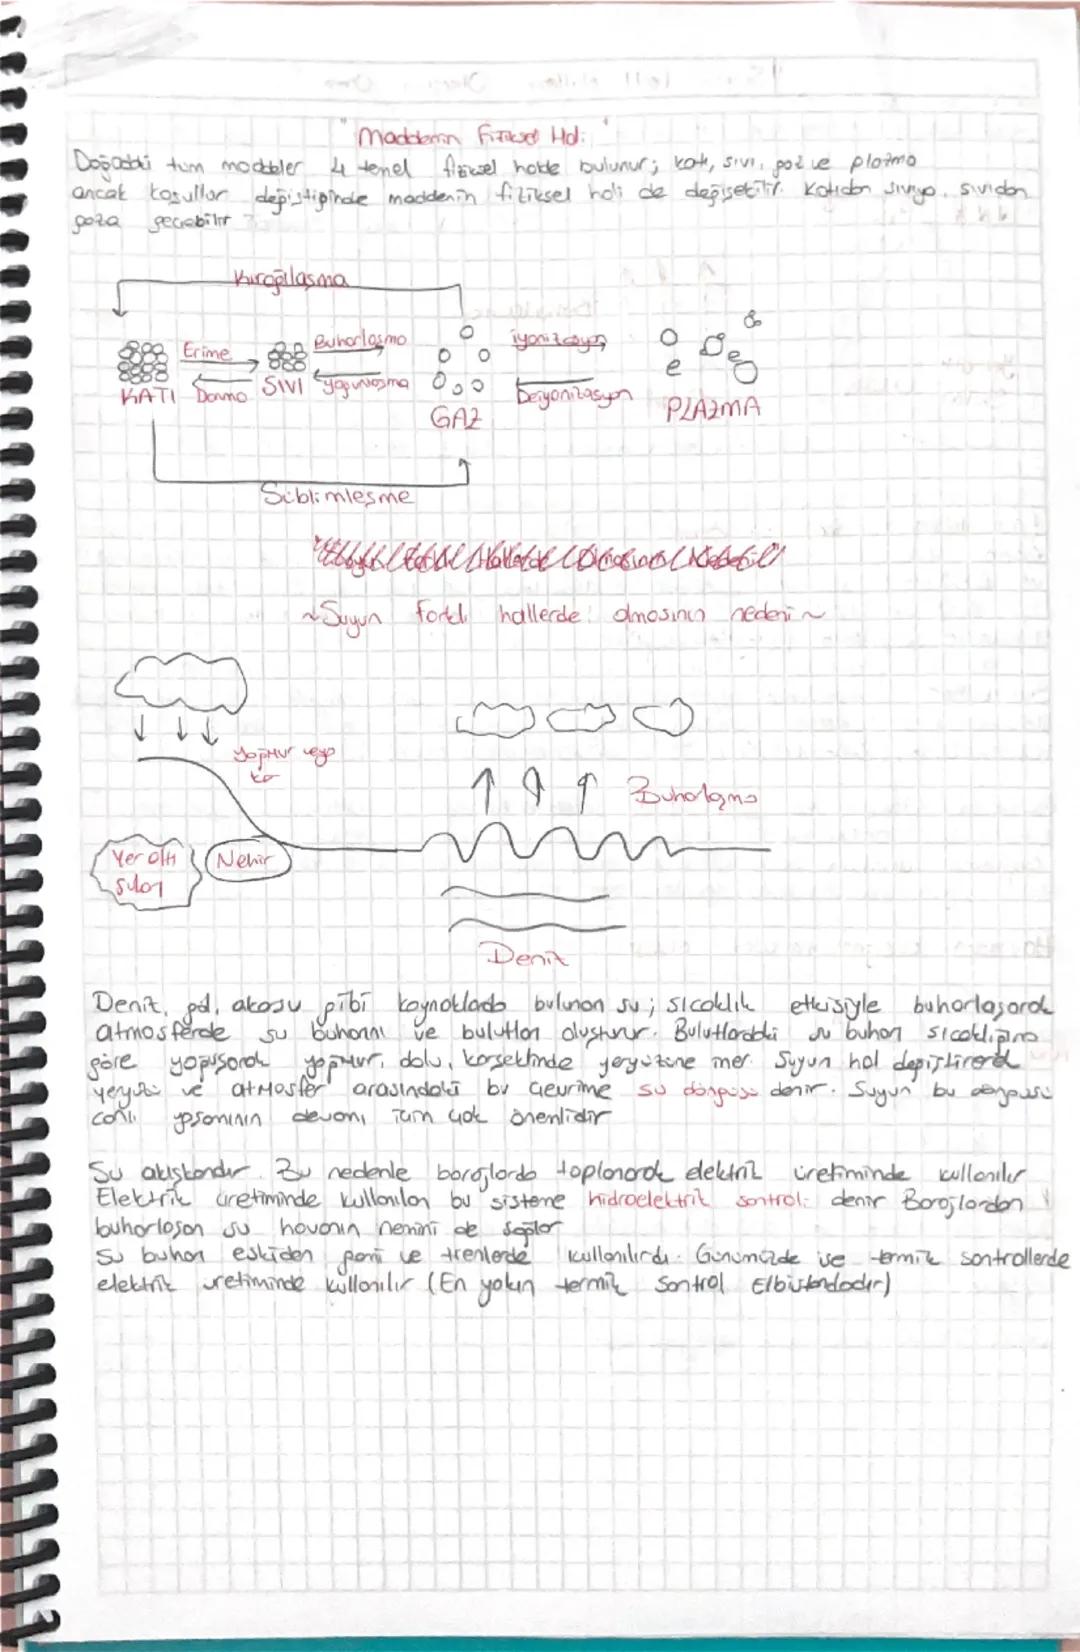 "Maddenin Fiziksel Hali"
Doğadaki tüm maddeler 4 temel fiziksel halde bulunur; katı, sıvı, gaz ve plazma
ancak koşullar değiştiğinde maddenin fiziksel hali de değişebilir. Katıdan sıvıya, sıvıdan
gaza geçebilir
Kırağılaşma
Erime
Buharlaşma
iyonizasyon
KATI
Donma
SIVI
yoğunlaşma
GAZ
Deiyonizasyon
PLAZMA
e
e
Süblimleşme
~Suyun farklı hallerde olmasının nedeni~
Yağmur veya
kar
Buharlaşma
Yer altı
suları
Nehir
Deniz
Deniz, göl, akarsu gibi kaynaklarda bulunan su; sıcaklık etkisiyle buharlaşarak
atmosferde su buharını ve bulutları oluşturur. Bulutlardaki su buharı sıcaklığına
göre yoğuşarak yağmur, dolu, kar şeklinde yeryüzüne iner. Suyun hal değiştirerek
yeryüzü ve atmosfer arasındaki bu çevrime su döngüsü denir. Suyun bu döngüsü
canlı yaşamının devamı için çok önemlidir
Su akışkandır. Bu nedenle barajlarda toplanarak elektrik üretiminde kullanılır
Elektrik üretiminde kullanılan bu sisteme hidroelektrik santrali denir Barajlardan
buharlaşan su havanın nemini de sağlar
Su buharı eskiden gemi ve trenlerde kullanılırdı. Günümüzde ise termik santrallerde
elektrik üretiminde kullanılır (En yakın termik santral Elbistandadır)